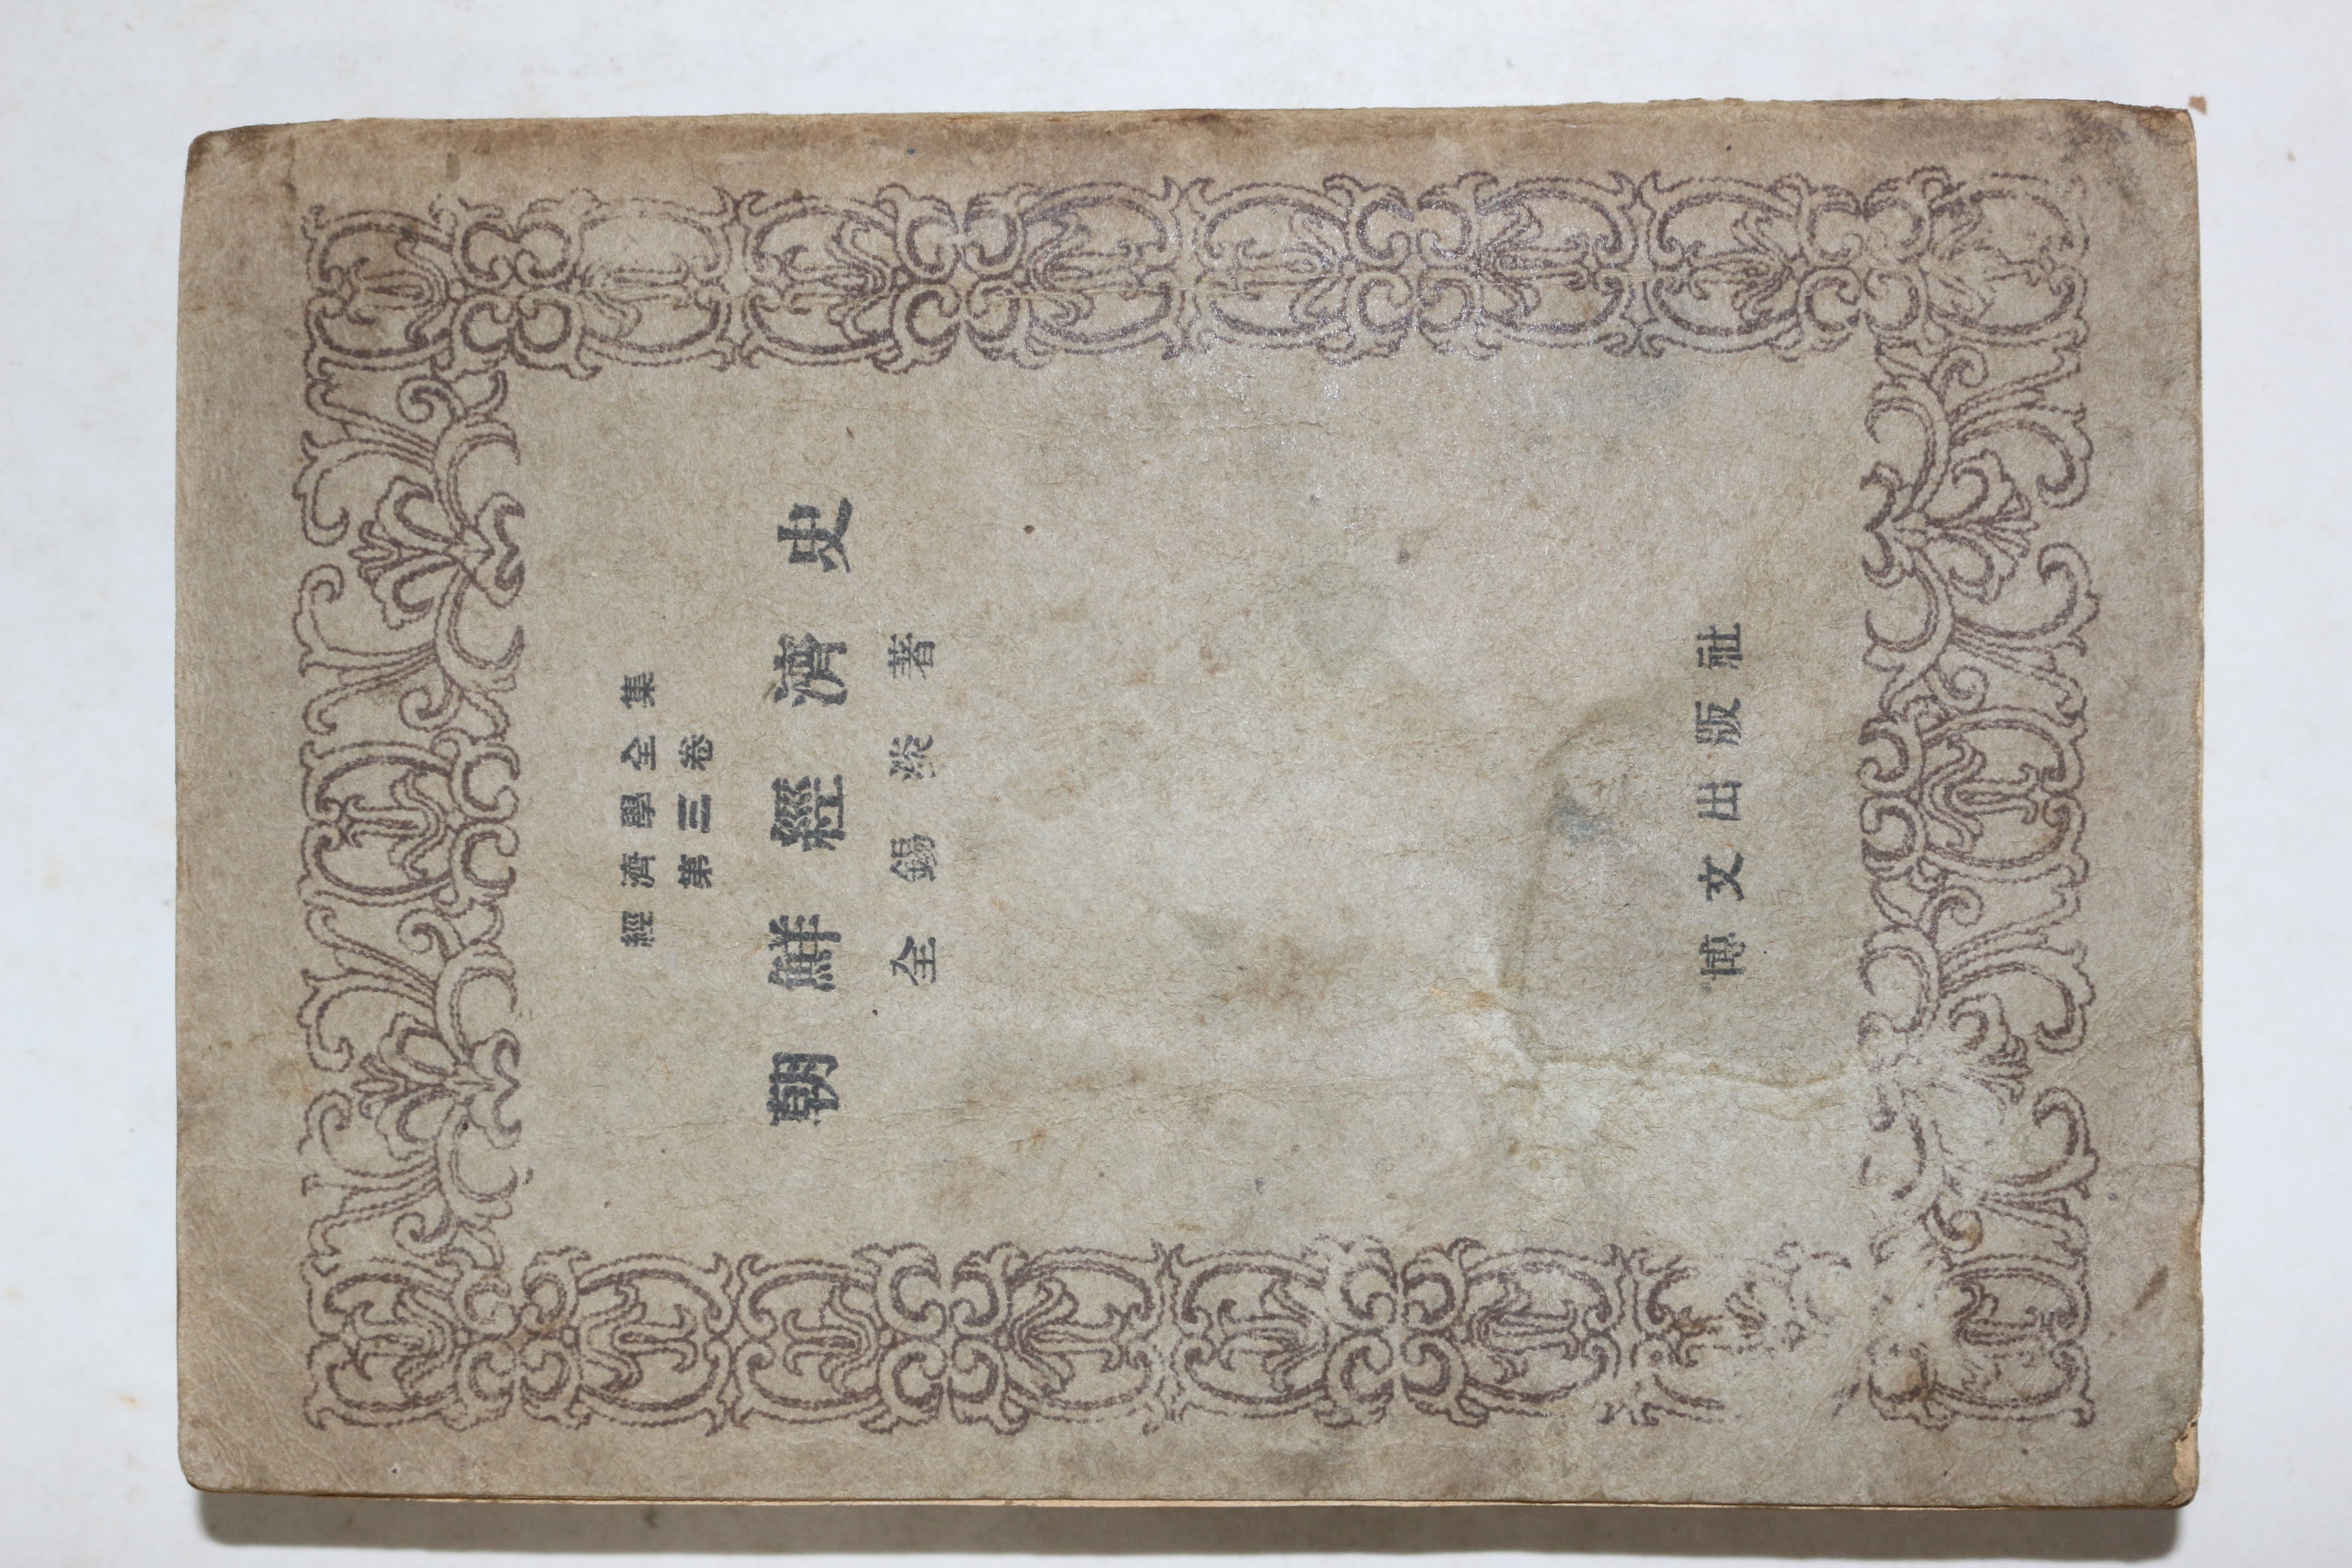 經濟學全集
第三卷
朝鮮經濟史
全錫淡著
博文出版社